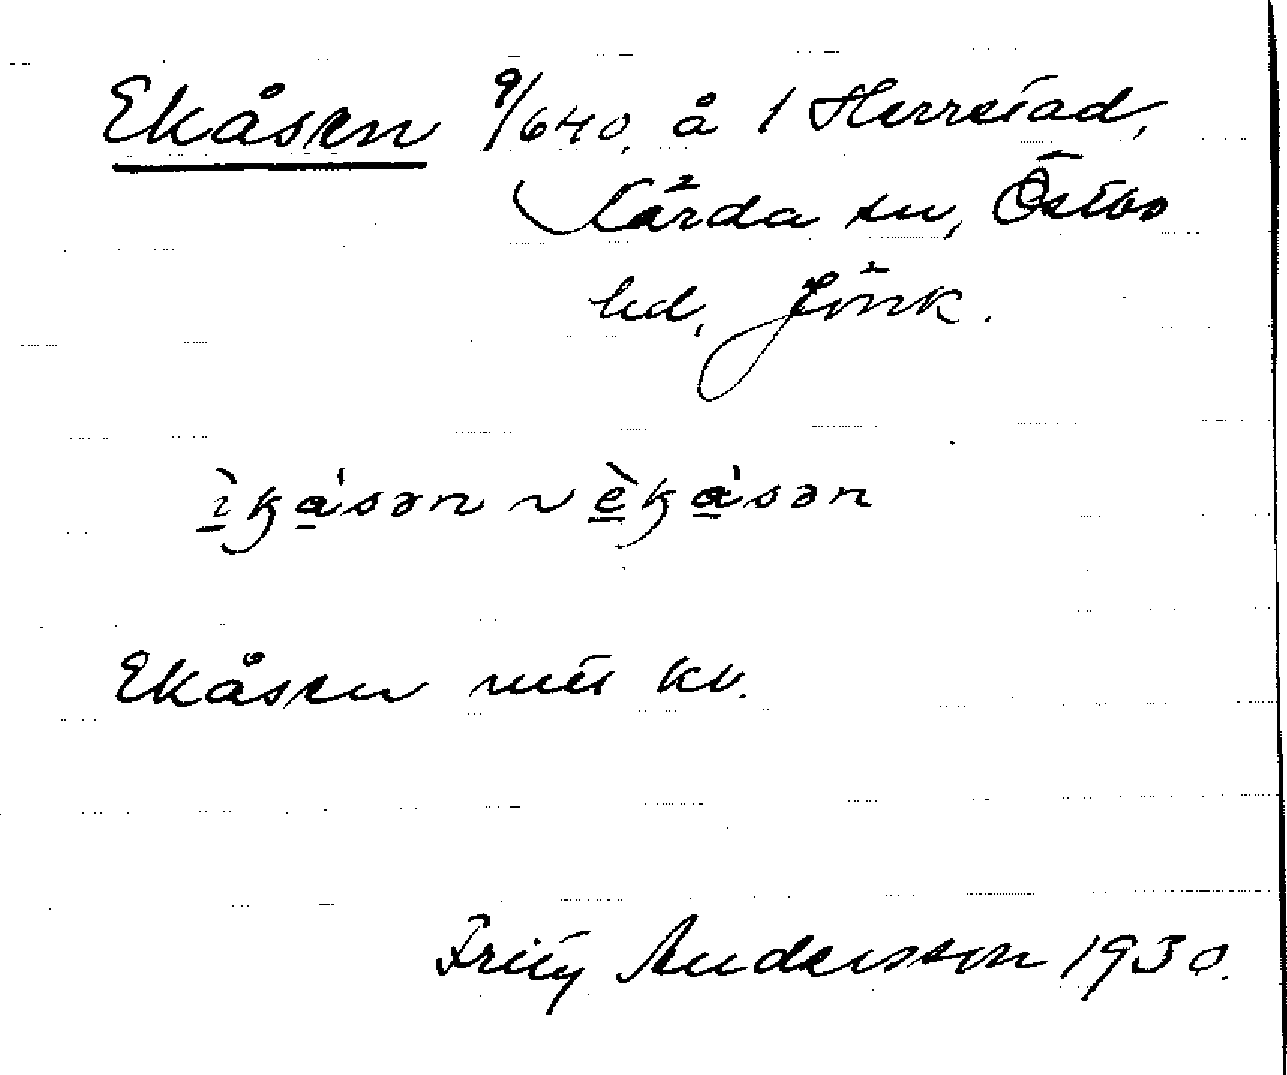 Ekåsen 9/640, å 1 Herrestad,
Kärda sn, Östbo
hd, Jönk.
èkåˈsən ~ èkåˈsən
Ekåsen rue kv.
Fritz Andersson 1930.